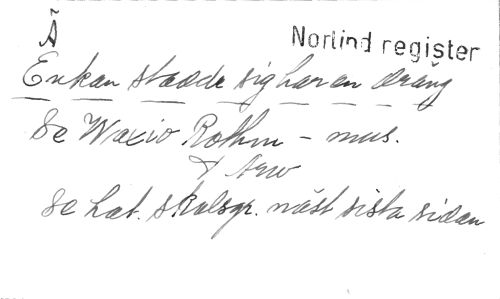 Ã
Norlind register
Enkan städde sig har en dräng
Se Waxio Rothm - mus.
& Arw
Se hat. skalsgr. näst sista sidan